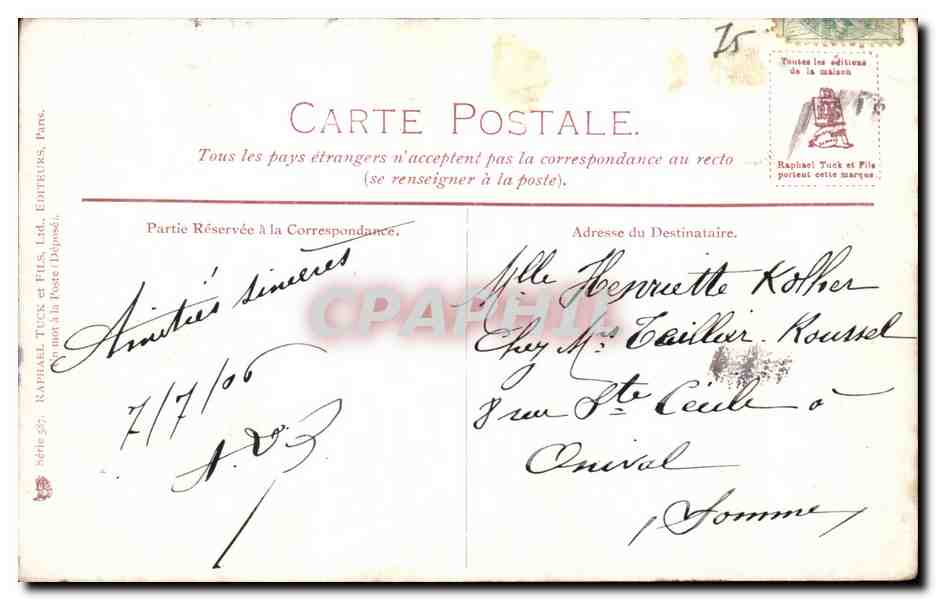 75
Toutes les éditions
de la maison
Raphael Tuck et Fils
portent cette marque.
CARTE POSTALE.
Tous les pays étrangers n'acceptent pas la correspondance au recto
(se renseigner à la poste).
Partie Réservée à la Correspondance.
Amitiés sincères
7/7/06
Adresse du Destinataire.
Mlle Henriette Kolher
Chez Mrs Taillier-Roussel
8 rue Ste Cécile à
Onival
(Somme)
Série 587. RAPHAEL TUCK et FILS, Ltd., EDITEURS, Paris.
Un mot à la Poste (Déposé).
CPAPHIL